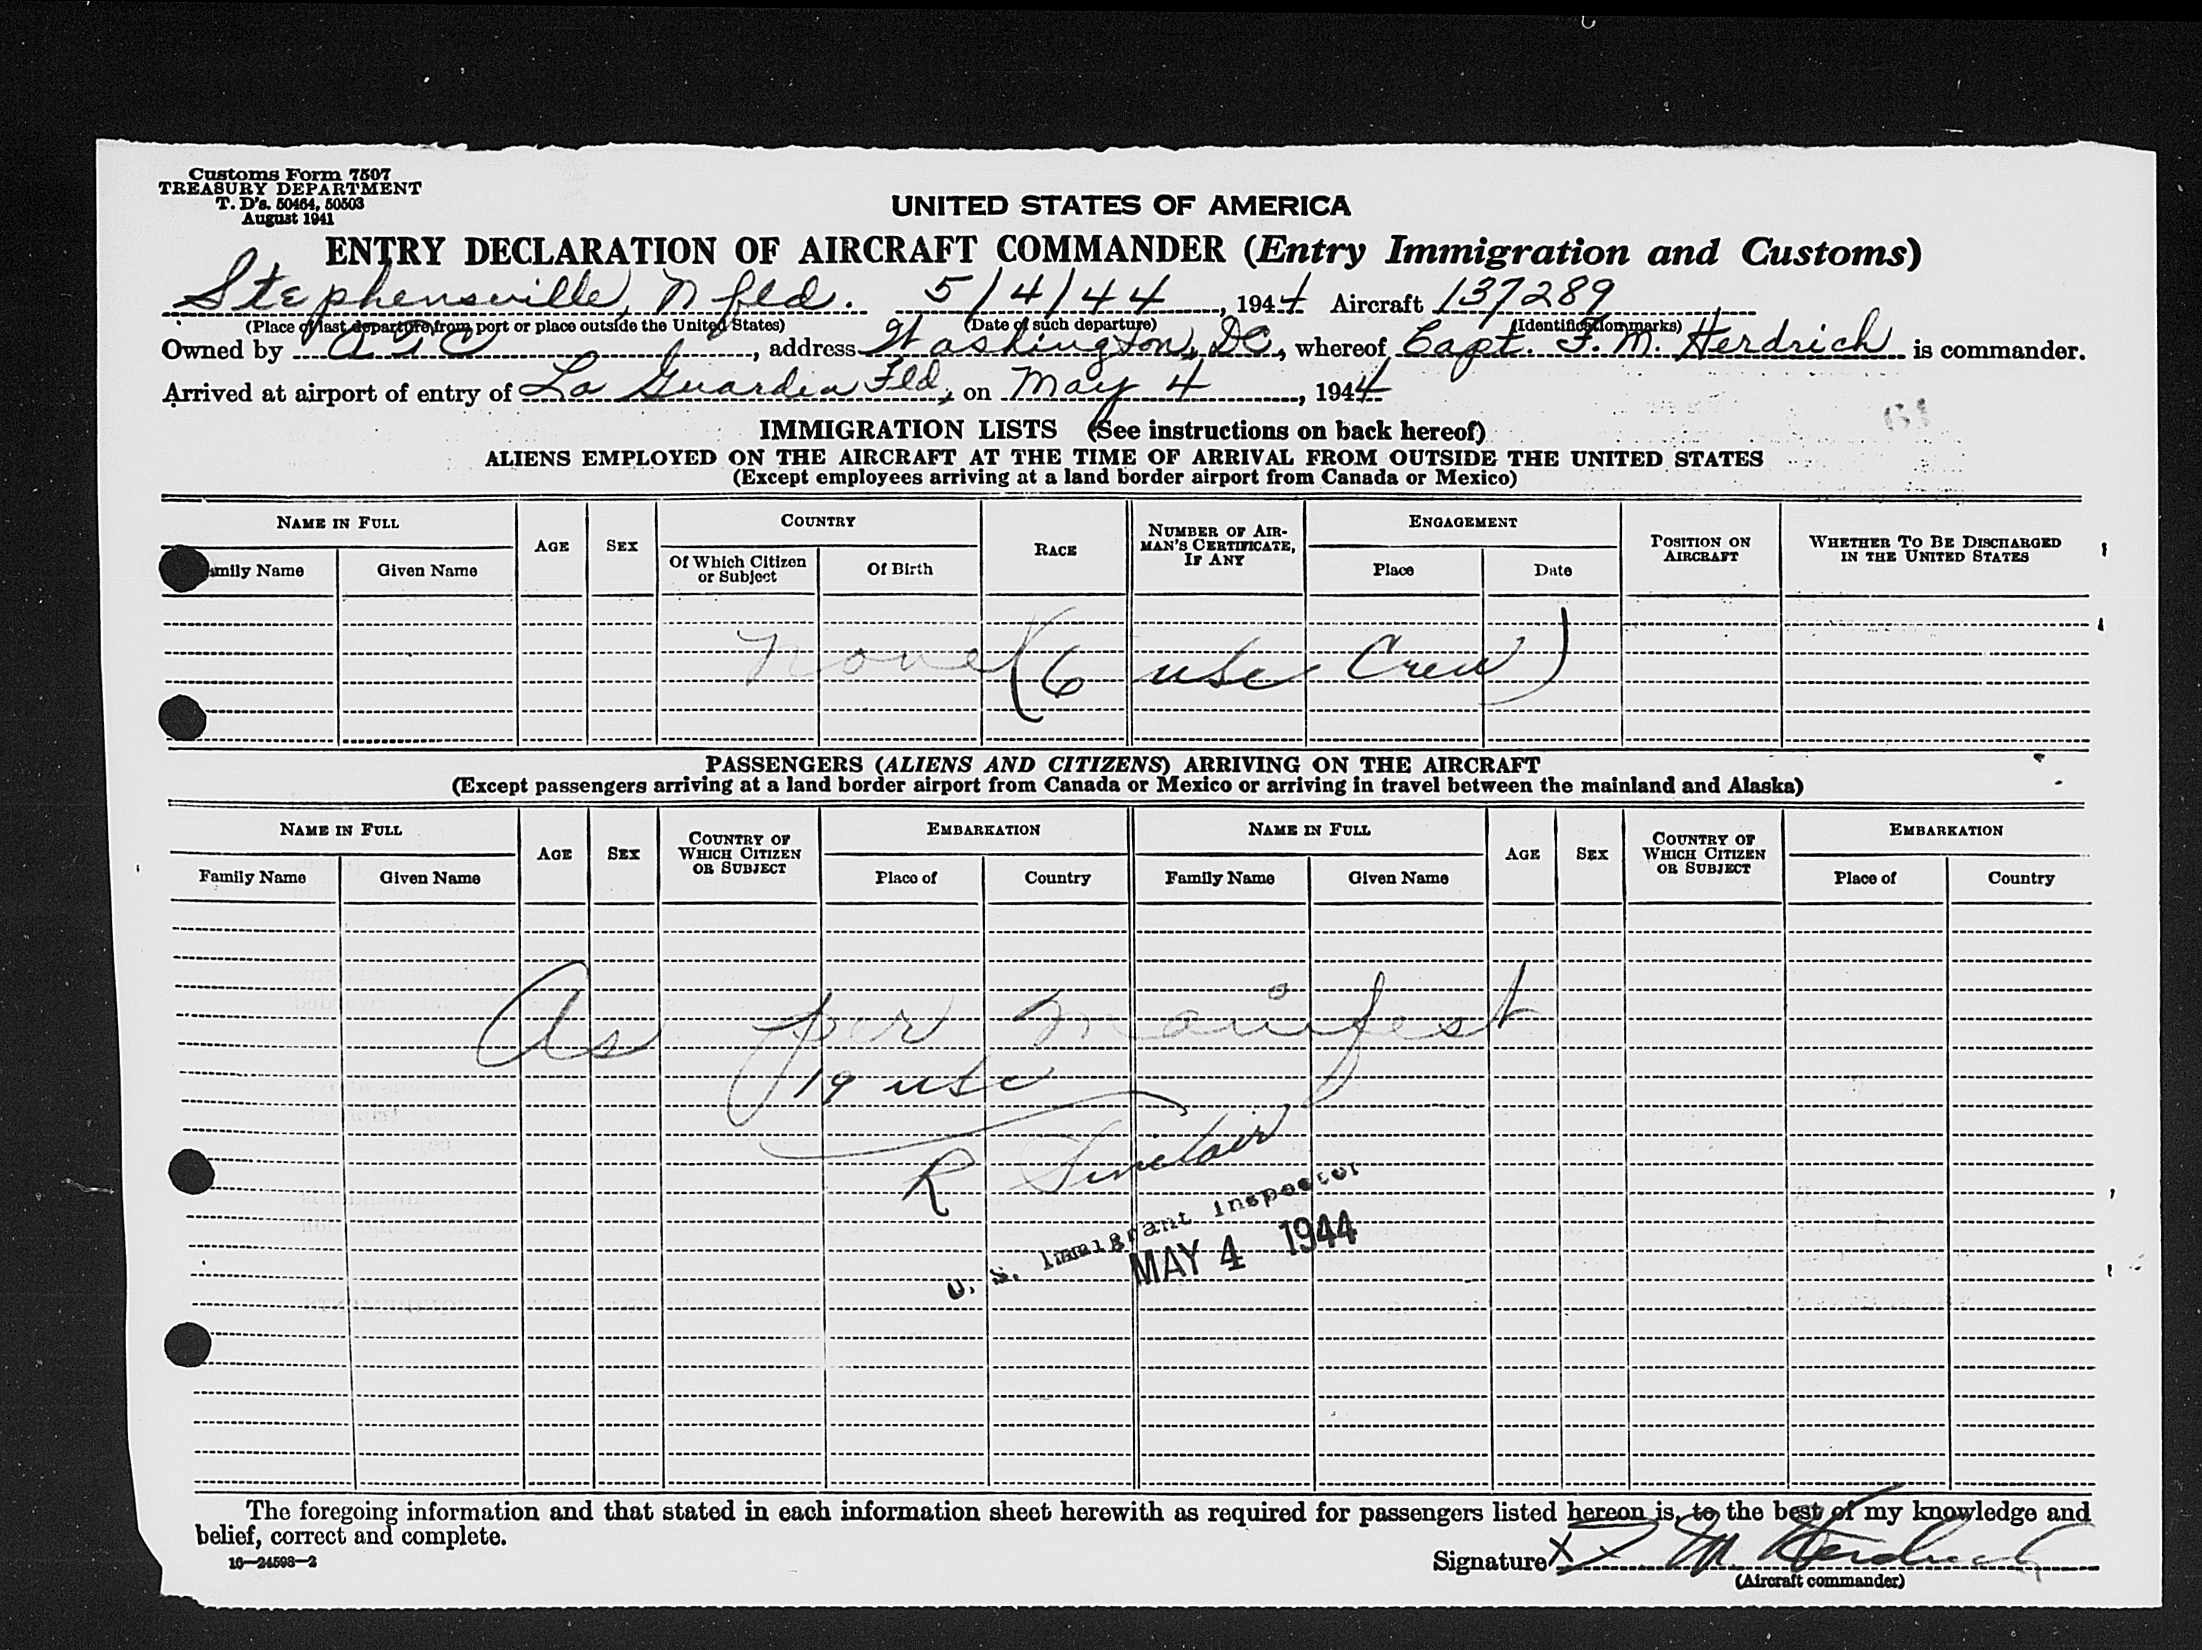 Customs Form 7507
TREASURY DEPARTMENT
T. D's. 50464, 50503
August 1941
UNITED STATES OF AMERICA
ENTRY DECLARATION OF AIRCRAFT COMMANDER (Entry Immigration and Customs)
Stephensville, Nfld. 5/4/44, 1944 Aircraft 137289
(Place of last departure from port or place outside the United States) (Date of such departure) (Identification marks)
Owned by ATC, address Washington, DC, whereof Capt. F. M. Herdrich is commander.
Arrived at airport of entry of La Guardia Fld, on May 4, 1944
IMMIGRATION LISTS (See instructions on back hereof)
ALIENS EMPLOYED ON THE AIRCRAFT AT THE TIME OF ARRIVAL FROM OUTSIDE THE UNITED STATES
(Except employees arriving at a land border airport from Canada or Mexico)
NAME IN FULL AGE SEX COUNTRY RACE NUMBER OF AIRMAN'S CERTIFICATE, IF ANY ENGAGEMENT POSITION ON AIRCRAFT WHETHER TO BE DISCHARGED IN THE UNITED STATES
Family Name Given Name Of Which Citizen or Subject Of Birth Place Date
None (6 usc Crew)
PASSENGERS (ALIENS AND CITIZENS) ARRIVING ON THE AIRCRAFT
(Except passengers arriving at a land border airport from Canada or Mexico or arriving in travel between the mainland and Alaska)
NAME IN FULL AGE SEX COUNTRY OF WHICH CITIZEN OR SUBJECT EMBARKATION NAME IN FULL AGE SEX COUNTRY OF WHICH CITIZEN OR SUBJECT EMBARKATION
Family Name Given Name Place of Country Family Name Given Name Place of Country
As per manifest
19 usc
R Sinclair
U. S. Immigrant Inspector
MAY 4 1944
The foregoing information and that stated in each information sheet herewith as required for passengers listed hereon is, to the best of my knowledge and
belief, correct and complete.
16—24598-2
Signature XF. M. Herdrich
(Aircraft commander)